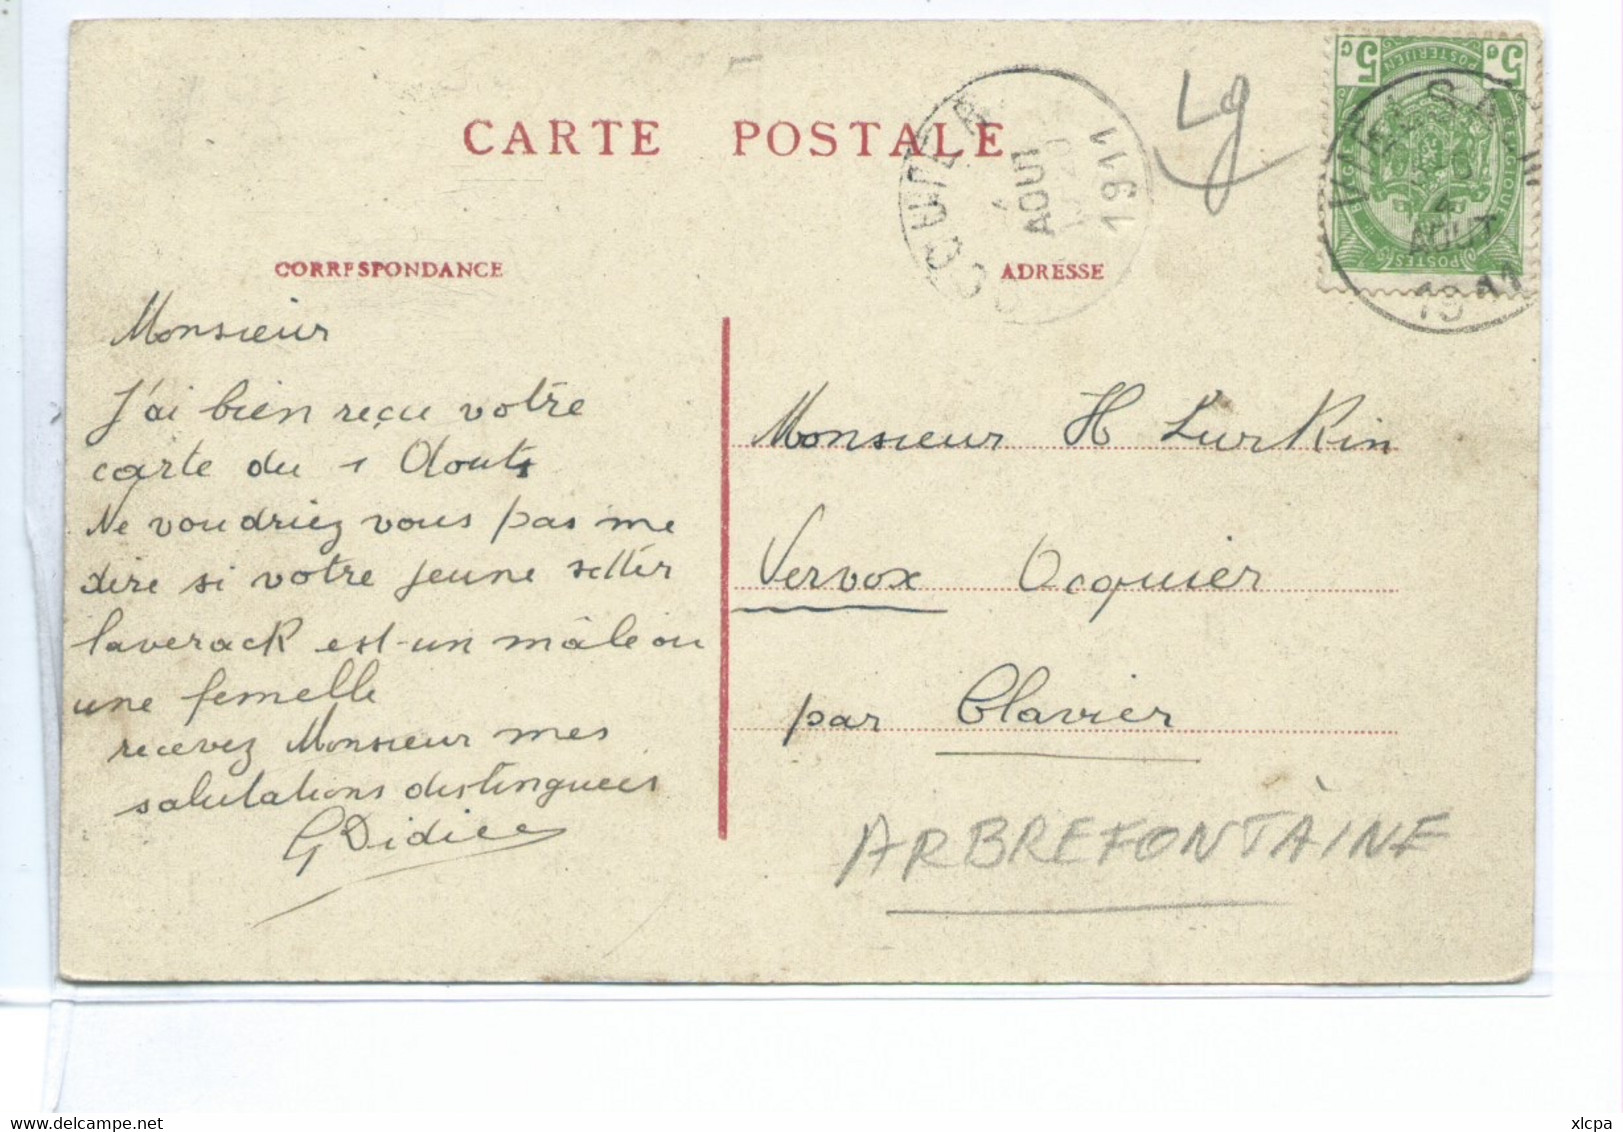 CARTE POSTALE
Lg
5 c
5 c
POSTERIJEN
BELGIQUE
POSTES
AOUT
1911
4
AOUT
19 11
CORRESPONDANCE
ADRESSE
Monsieur
J'ai bien reçu votre
carte du 1 Aout
Ne voudriez vous pas me
dire si votre jeune setter
laverack est-un mâle ou
une femelle
recevez Monsieur mes
salutations distinguees
G Didier
Monsieur H Lurkin
Vervox Ocquier
par Clavier
ARBREFONTAINE
delcampe.net
xlcpa